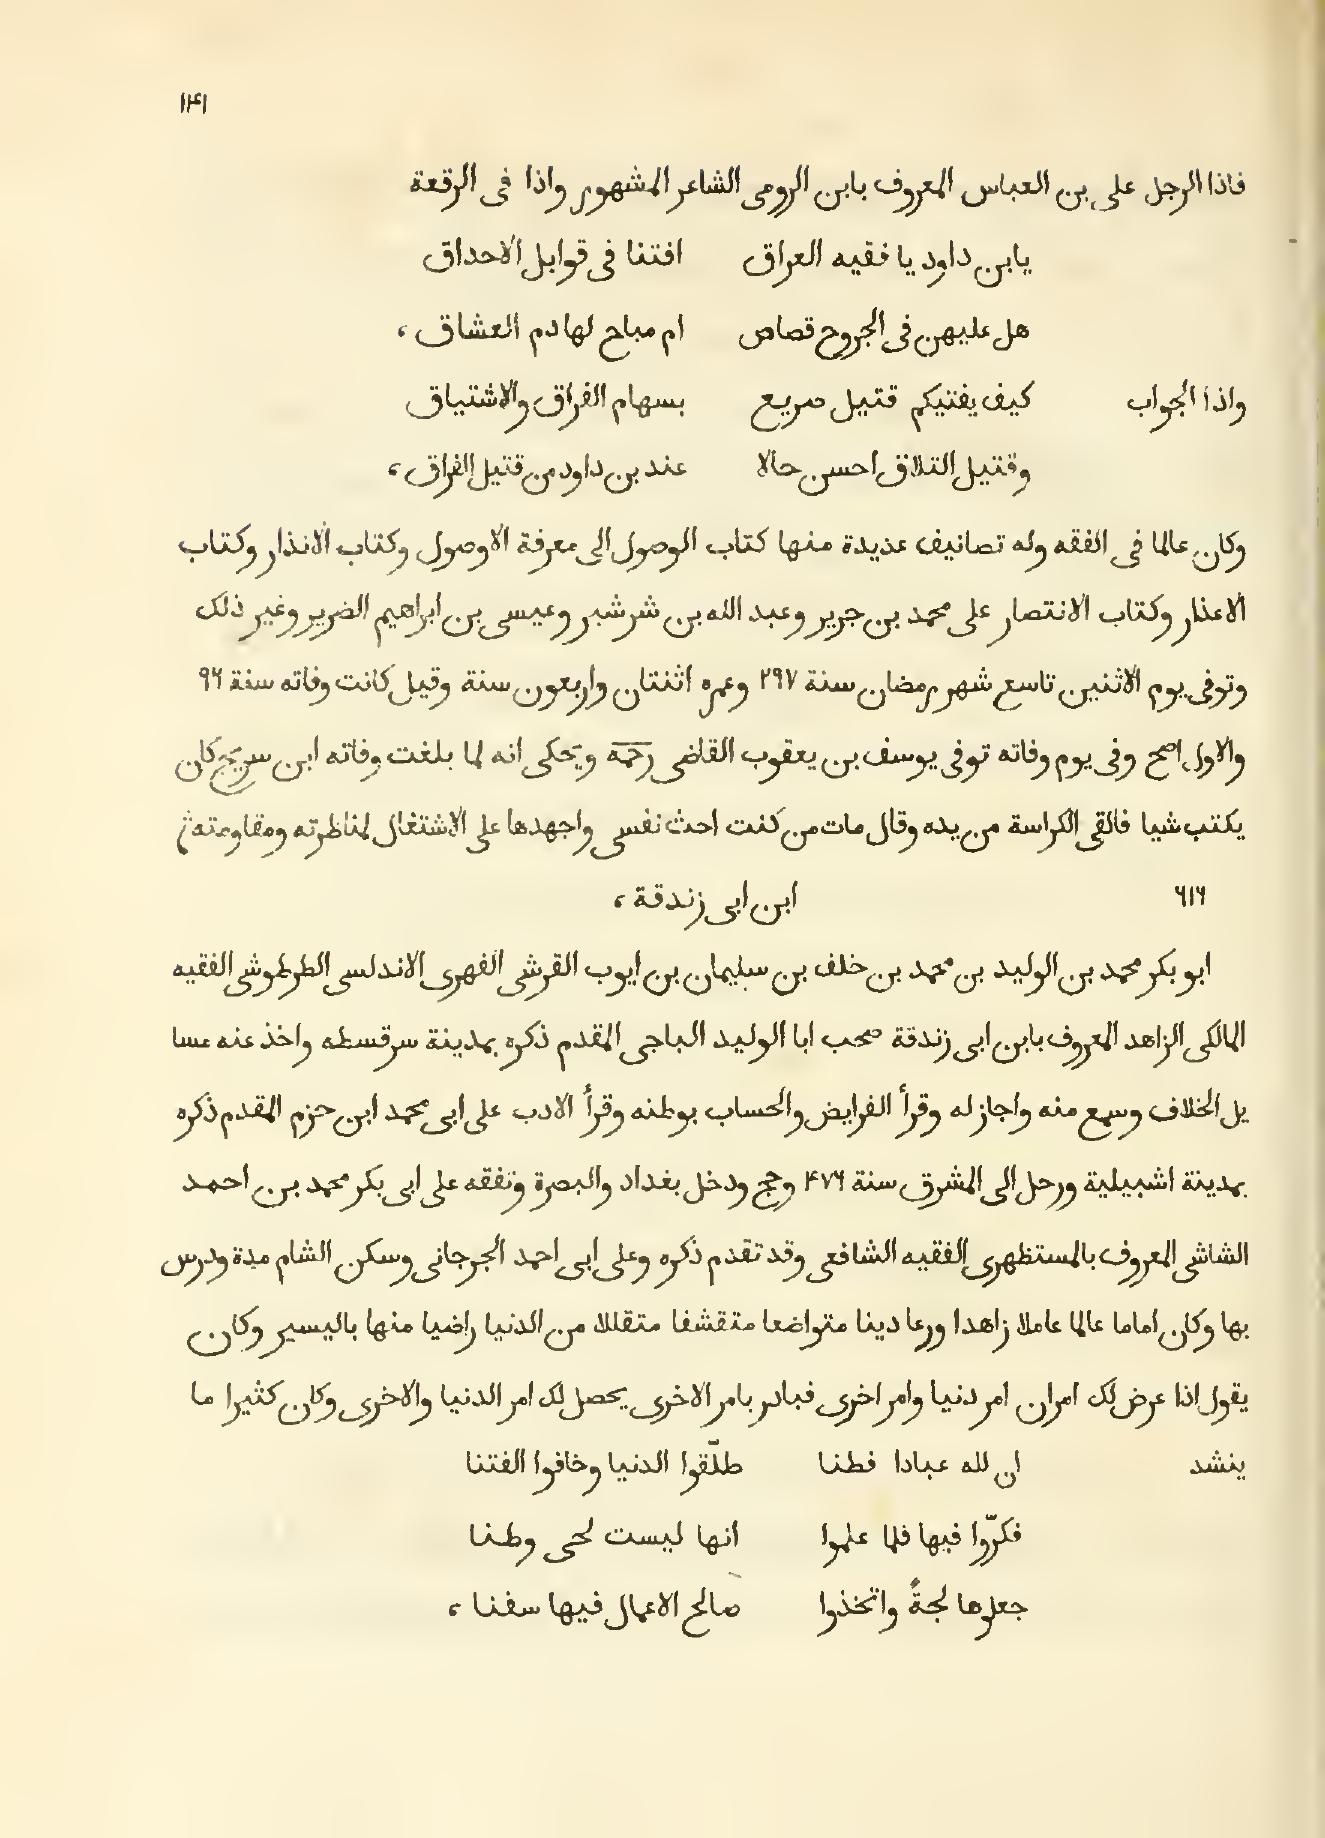 ١٤١
فاذا الرجل على بن العباس المعروف بابن الرومى الشاعر المشهور واذا فى الرقعة
يابن داود يا فقيه العراق افتنا فى قوابل الاحداق
هل عليهن فى الجروح قصاص ام مباح لها دم العشاق ،
واذا الجواب كيف يفتيكم قتيل صريع بسهام الفراق والاشتياق
وقتيل التلاق احسن حالا عند بن داود من قتيل الفراق ،
وكان عالما فى الفقه وله تصانيف عديدة منها كتاب الوصول الى معرفة الاوصول وكتاب الانذار وكتاب
الاعذار وكتاب الانتصار على محمد بن جرير وعبد الله بن شرشير وعيسى بن ابراهيم الضرير وغير ذلك
وتوفى يوم الاثنين تاسع شهر رمضان سنة ٢٩٧ وعمره اثنتان واربعون سنة وقيل كانت وفاته سنة ٩٦
والاول اصح وفى يوم وفاته توفى يوسف بن يعقوب القاضى رحمه ويحكى انه لما بلغت وفاته ابن سريج كان
يكتب شيا فالقى الكراسة من يده وقال مات من كنت احث نفسى واجهدها على الاشتغال لمناظرته ومقاومته ،
٦١٦ ابن ابى زندقة ،
ابو بكر محمد بن الوليد بن محمد بن خلف بن سليمان بن ايوب القرشى الفهرى الاندلسى الطرطوشى الفقيه
المالكى الزاهد المعروف بابن ابى زندقة صحب ابا الوليد الباجى المقدم ذكره بمدينة سرقسطه واخذ عنه مسا
يل الخلاف وسمع منه واجاز له وقرأ الفرايض والحساب بوطنه وقرأ الادب على ابى محمد ابن حزم المقدم ذكره
بمدينة اشبيلية ورحل الى المشرق سنة ٤٧٦ وحج ودخل بغداد والبصرة وتفقه على ابى بكر محمد بن احمد
الشاشى المعروف بالمستظهرى الفقيه الشافعى وقد تقدم ذكره وعلى ابى احمد الجرجانى وسكن الشام مدة ودرس
بها وكان اماما عالما عاملا زاهدا ورعا دينا متواضعا متقشفا متقللا من الدنيا راضيا منها باليسير وكان
يقول اذا عرض لك امران امر دنيا وامر اخرى فبادر بامر الاخرى يحصل لك امر الدنيا والاخرى وكان كثيرا ما
ينشد ان لله عبادا فطنا طلّقوا الدنيا وخافوا الفتنا
فكرّوا فيها فلما علموا انها ليست لحى وطنا
جعلوها لجةً واتخذوا صالح الاعمال فيها سفنا ،